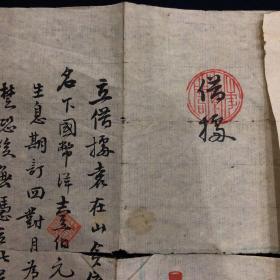 借據
立借據袁在山今借
名下國幣洋壹伯元
生息期訂回對月為
楚恐後無憑立此